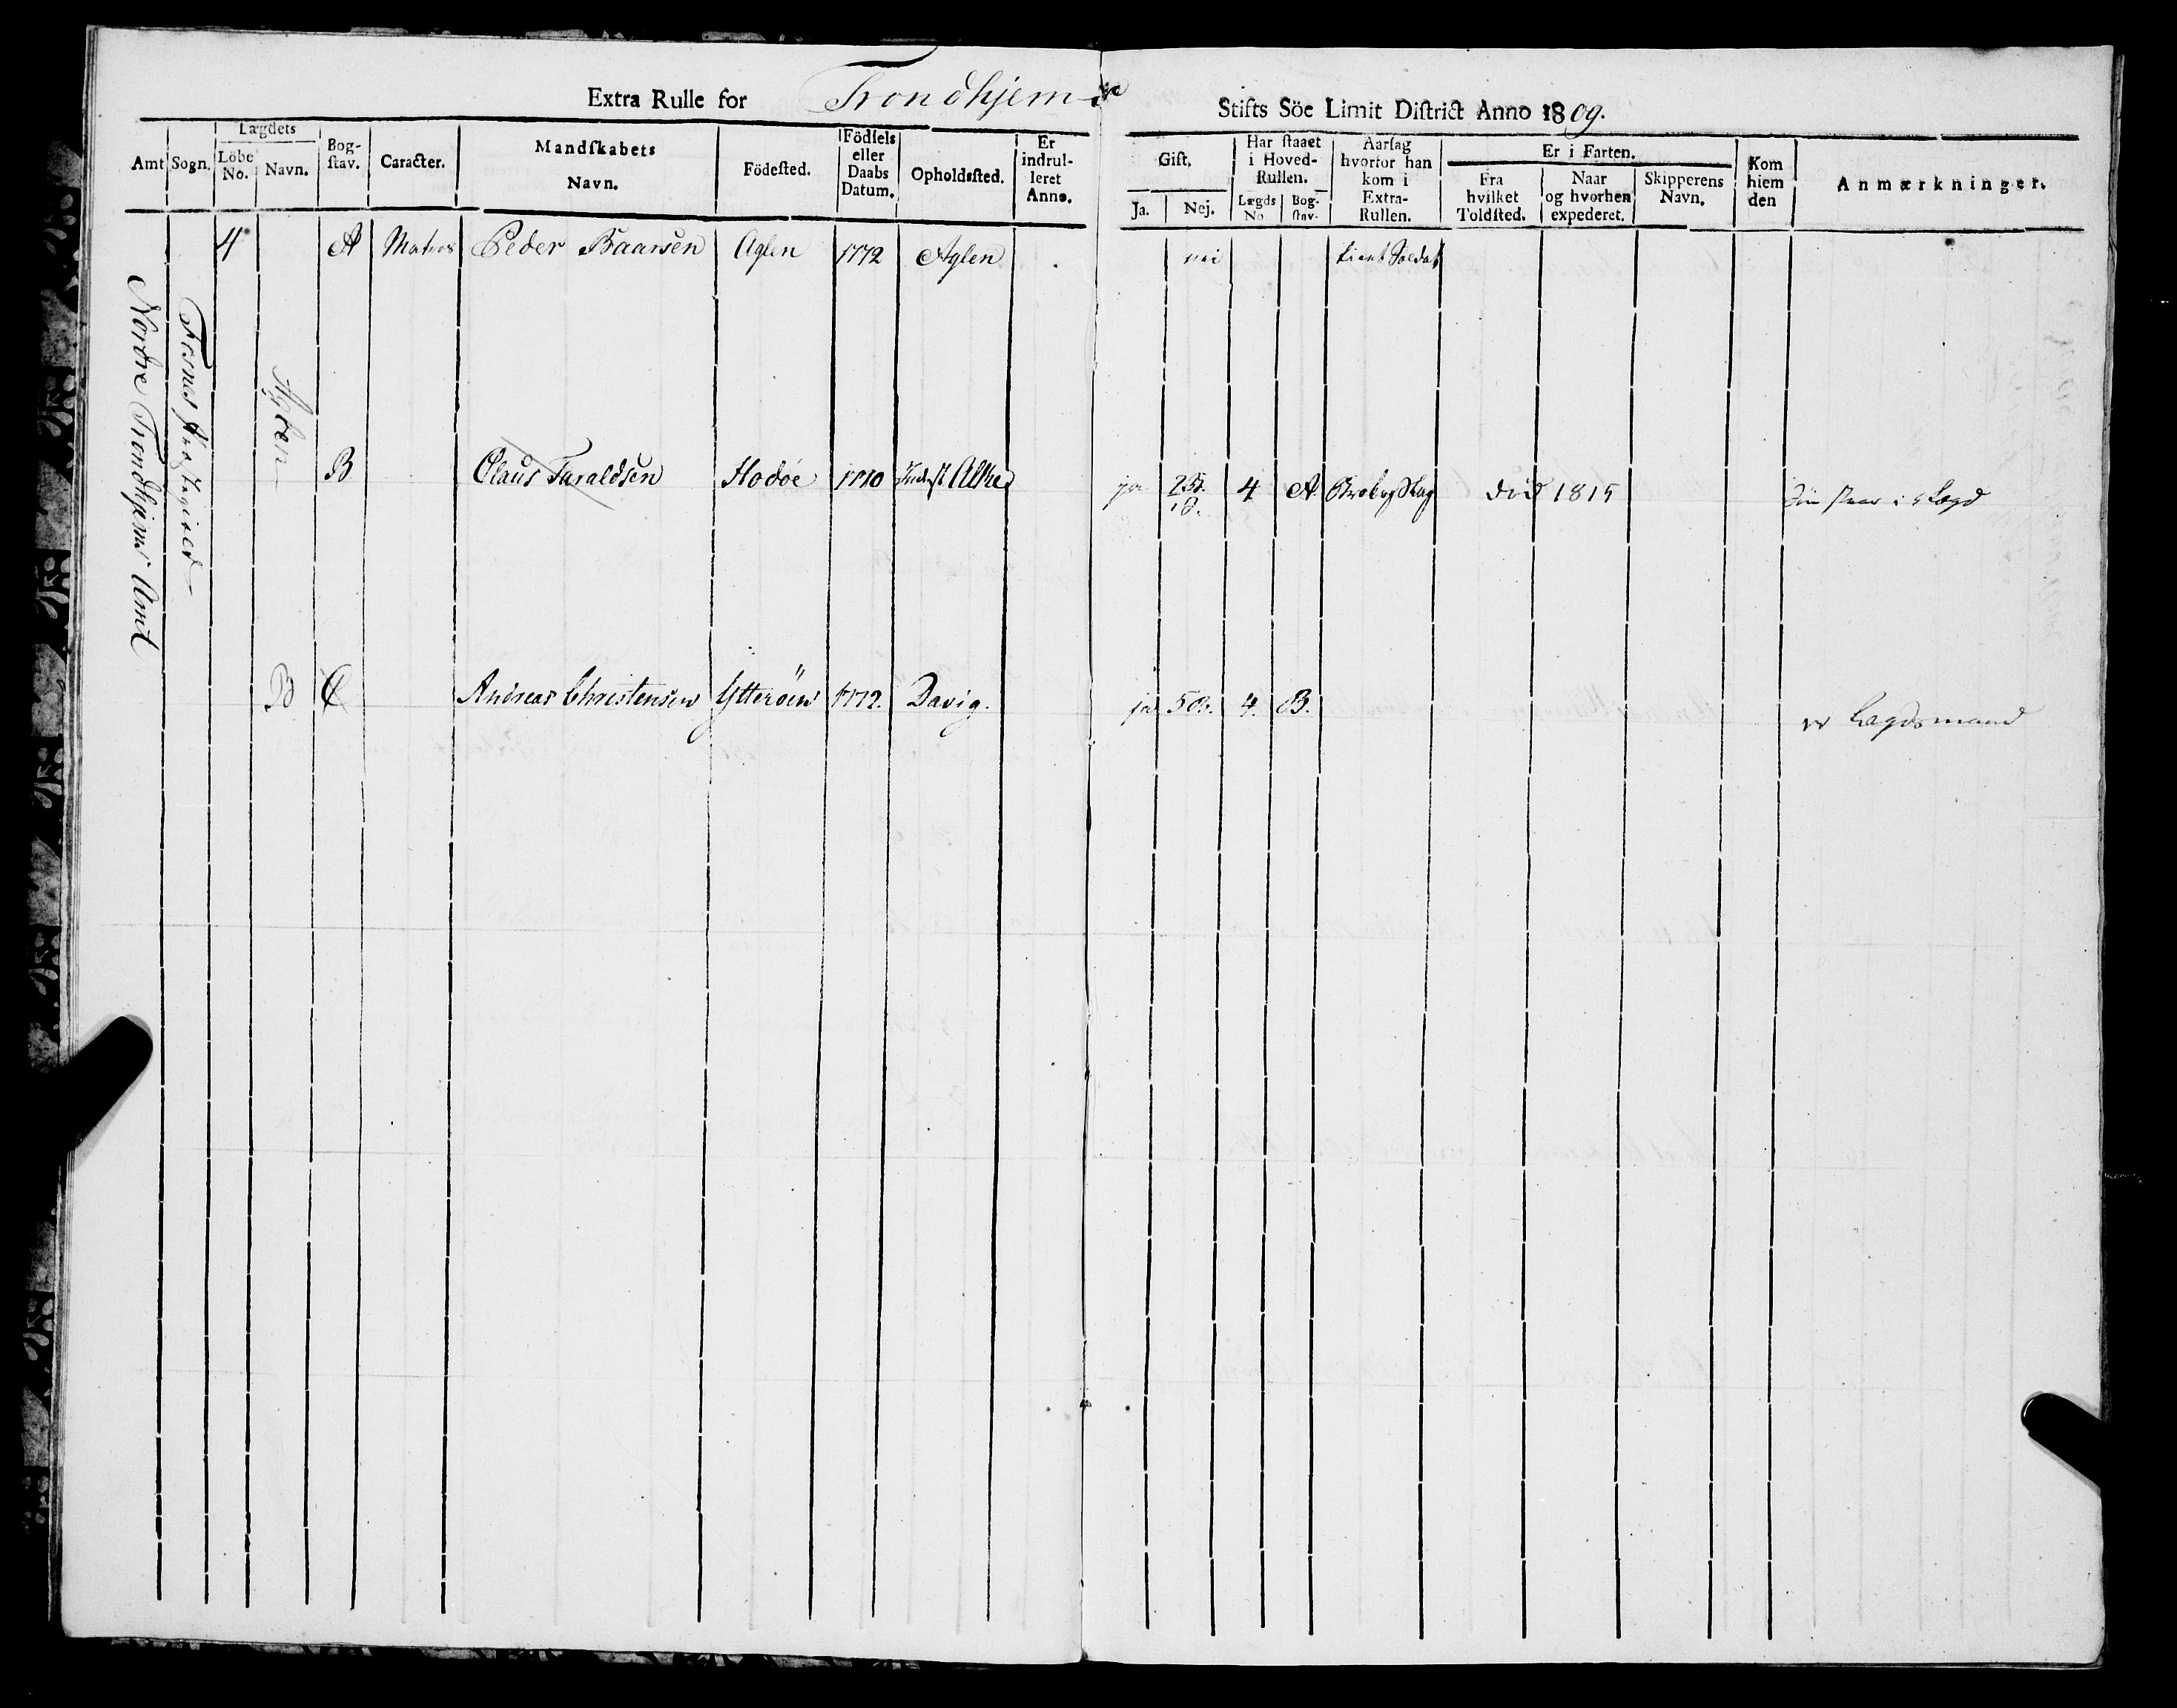 Extra Rulle for Trondhjems Stifts Söe Limit Distriƈt Anno 1809.
Amt Sogn. Lægdets Löbe No. Navn. Bog-ſtav. Caraƈter. Mandſkabets Navn. Födeſted. Födſels eller Daabs Datum. Opholdsſted. Er indrul-leret Anno. Gift. Ja. Nej. Har ſtaaet i Hoved-Rullen. Lægds No. Bog-ſtav. Aarſag hvorfor han kom i Extra-Rullen. Er i Farten. Fra hvilket Toldſted. Naar og hvorhen expederet. Skipperens Navn. Kom hiem den Anmærkninger.
Nordre Trondhjems Amt
Fosnes
Aglen
4 A Matros Peder Baarsen Aglen 1772 Aglen nei tient Soldat
B Olaus Taraldsen Hodöe 1710 ja 4 A. död 1815 staar i 4 Lægd
B C Andreas Christensen Ytteröen 1772. Davig. ja 5 B. 4. B. Lægdsmand